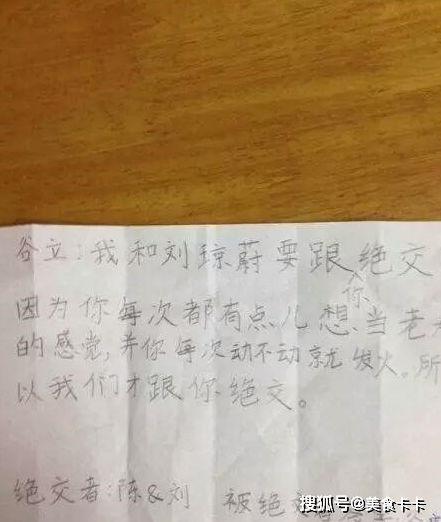 谷立:我和刘琼蔚要跟绝交
你
因为你每次都有点儿想、当老
的感觉,并你每次动不动就发火。所
以我们才跟你绝交。
绝交者:陈&刘 被绝交
搜狐号@美食卡卡